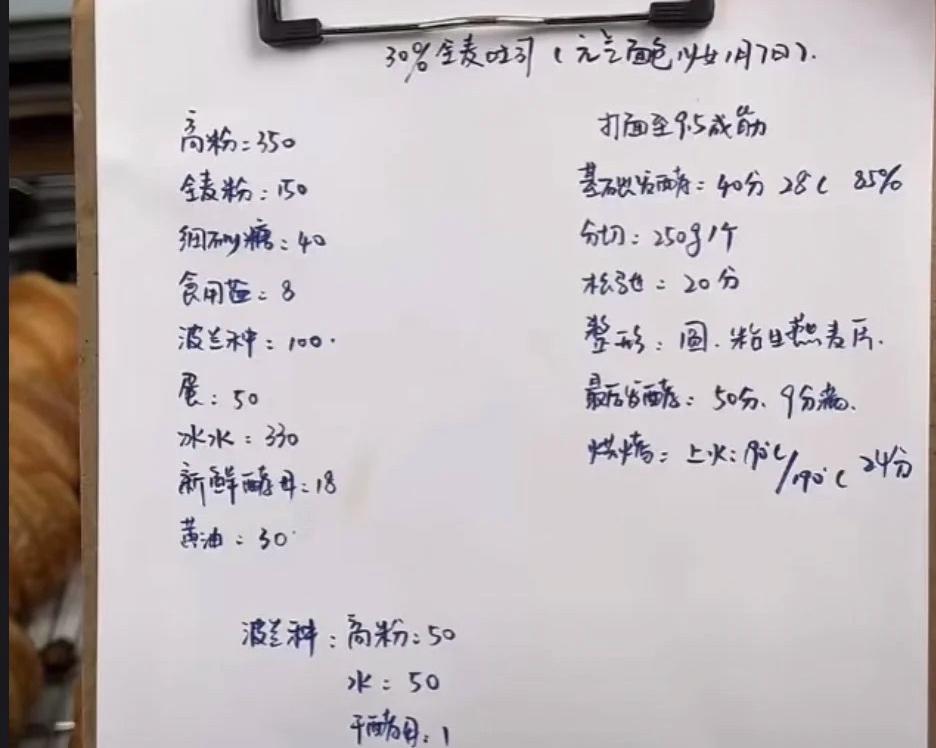 30%全麦吐司（元气面包少女1月7日）.
高粉：350
全麦粉：150
细砂糖：40
食用盐：8
波兰种：100.
蛋：50
冰水：330
新鲜酵母：18
黄油：30
波兰种：高粉：50
水：50
干酵母：1
打面至9.5成筋
基础发酵：40分 28C 85%
分切：250g/个
松弛：20分
整形：圆.粘生燕麦片.
最后发酵：50分、9分满.
烘烤：上火：190℃/190℃ 24分